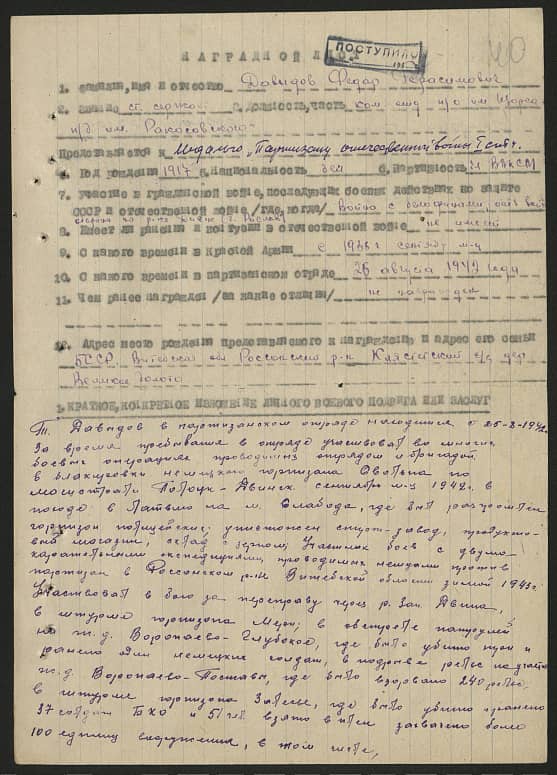 НАГРАДНОЙ ЛИСТ
ПОСТУПИЛО
40
1. Фамилия, имя и отчество Давыдов Федар Герасимович
2. Звание ст. 3. Должность, часть ком. отд п/о им Щорса
п/б им. Рокосовского
Представляется к Медалью "Партизану отечественной войны I степ."
4. Год рождения 1917 5. Национальность бел 6. Партийность чл ВЛКСМ
7. Участие в гражданской войне, последующих боевых действиях по защите
СССР и отечественной войне /где, когда/ Война с белофинами,
8. Имеет ли ранения и контузии в отечественной войне не имеет
9. С какого времени в Красной Армии с 1938г сентябр м-ц
10. С какого времени в партизанском отряде 25 августа 1942 года
11. Чем ранее награжден /за какие отличия/ не награжден
12. Адрес место рождения представляемого к награждению и адрес его семьи
БССР Витебской обл Россонский р-н Клястецкий с/с дер
Великое Болото
1. КРАТКОЕ, КОНКРЕТНОЕ ИЗЛОЖЕНИЕ ЛИЧНОГО БОЕВОГО ПОДВИГА ИЛИ ЗАСЛУГ
Т. Давыдов в партизанском отряде находился с 25-8-1942г.
За время пребывания в отряде участвовал во многих
боевых операциях проводимых отрядом и бригадой
в блакировки немецкого горнизона Сволена по
магистрали Полоцк-Двинск сентябрь м-ц 1942г. в
походе в Латвию на м. Слабода, где был разгромлен
горнизон полицейских уничтожен спирт-завод, продукто-
вый магазин, склад с зерном; Участник боев с двумя
карательными экспедициями, проводимых немцами против
партизан в Россонском р-не Витебской области зимой 1943г.
Участвовал в бою за переправу через р. Зап. Двина,
в штурме горнизона в обстреле патрулей
на ж.д. Воропаево-Глубокое, где было убито один и
ранено один немецких солдат, в подрыве рельс на участке
ж.д. Воропаево-Поставы, где было взорвано 240 рельс;
в штурме горнизона где было убито и ранено
37 солдат БКО и 51 чел взято в плен захвачено более
100 единиц вооружения, в том числе,